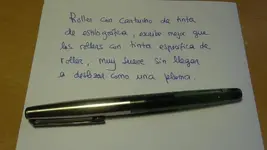 Roller con cartucho de tinta
de estilográfica, escribe mejor que
los rollers con tinta específica de
roller, muy suave sin llegar
a deslizar como una pluma.